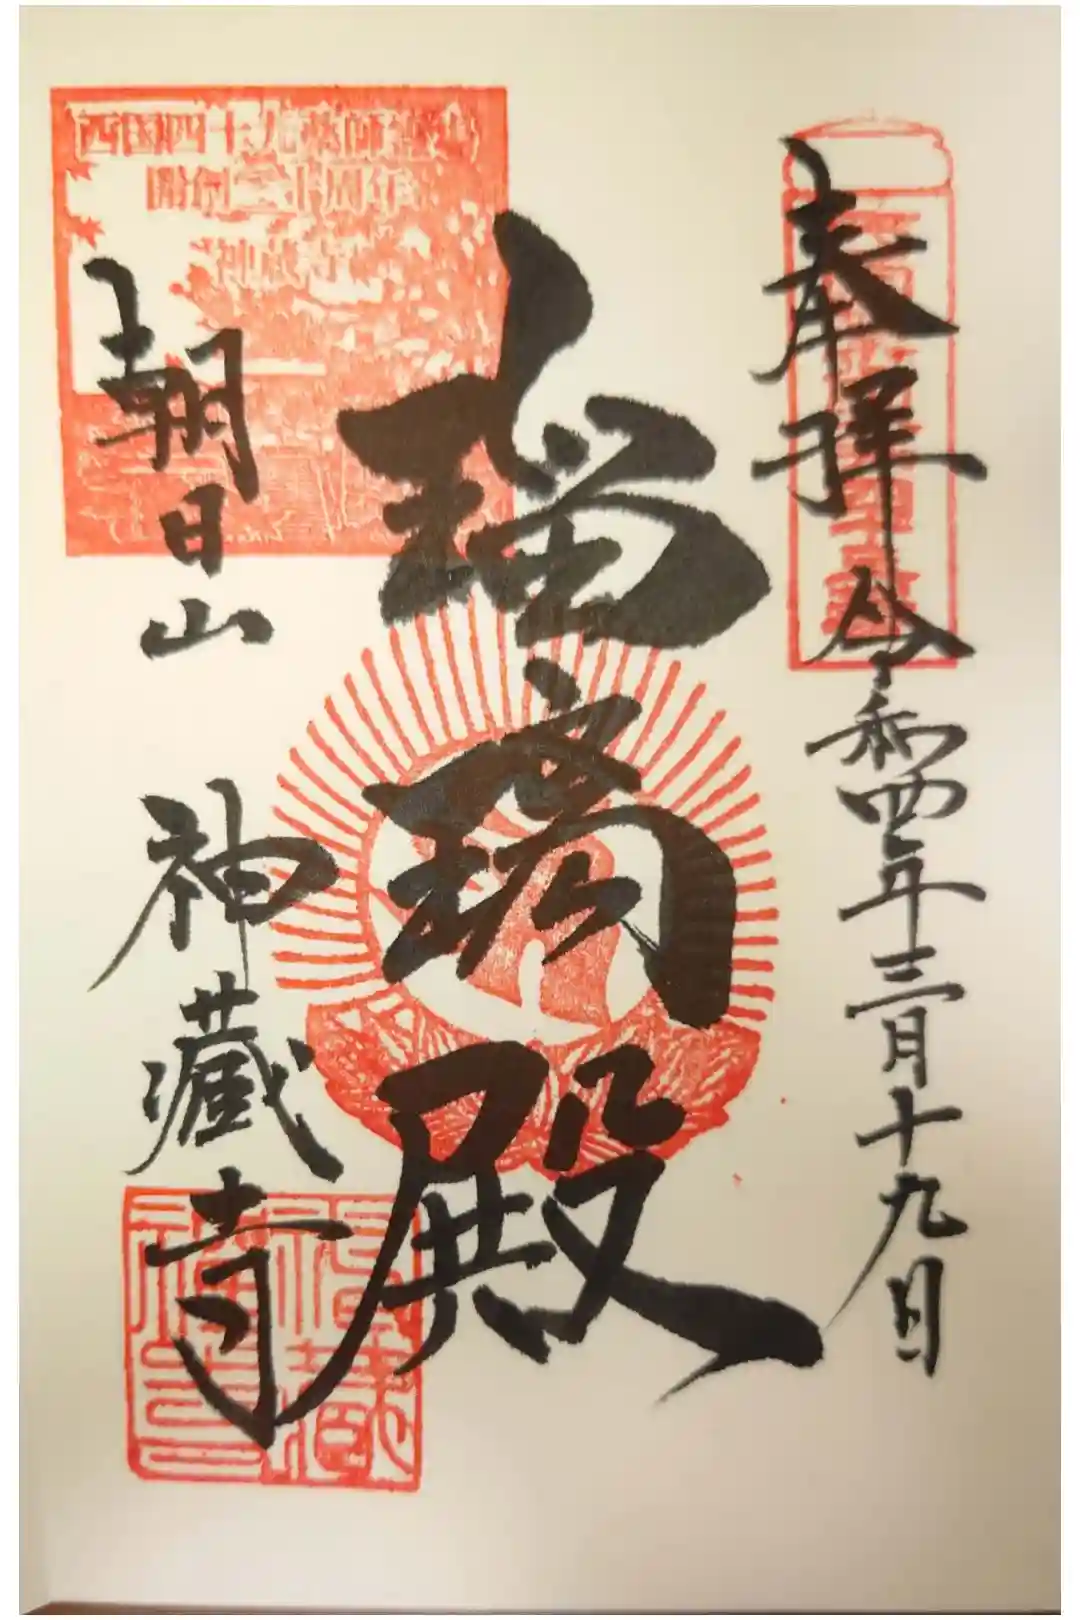 奉拝 令和四年三月十九日
瑠璃殿
西国四十九薬師霊場
開創三十周年
神蔵寺
朝日山 神蔵寺